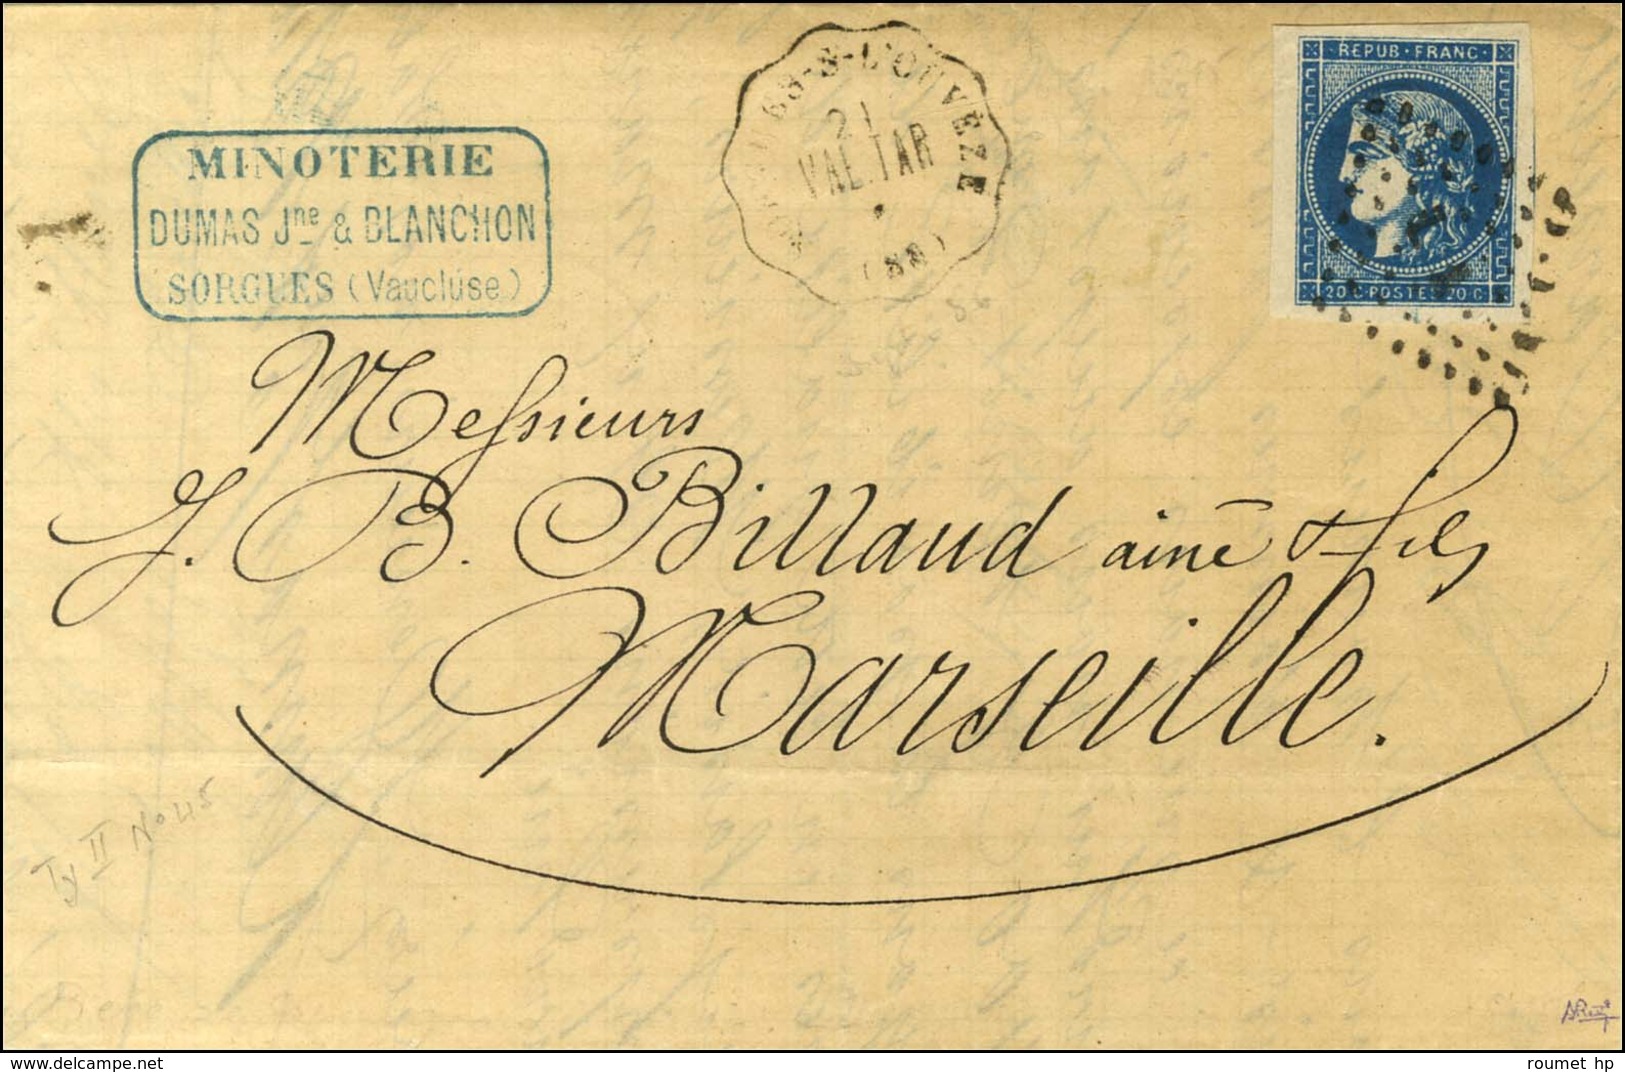 MINOTERIE
DUMAS Jne & BLANCHON
SORGUES (Vaucluse)
SORGUES-S-L'OUVÈZE
21
VAL.TAR
(88)
REPUB·FRANC
20·C·POSTES·20·C
Messieurs
J. B. Billaud ainé & fils
Marseille.
Ty II No 45
roumet hp